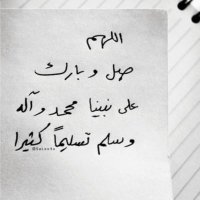 اللهم
صل و بارك
على نبينا محمد و آله
و سلم تسليماً كثيرا